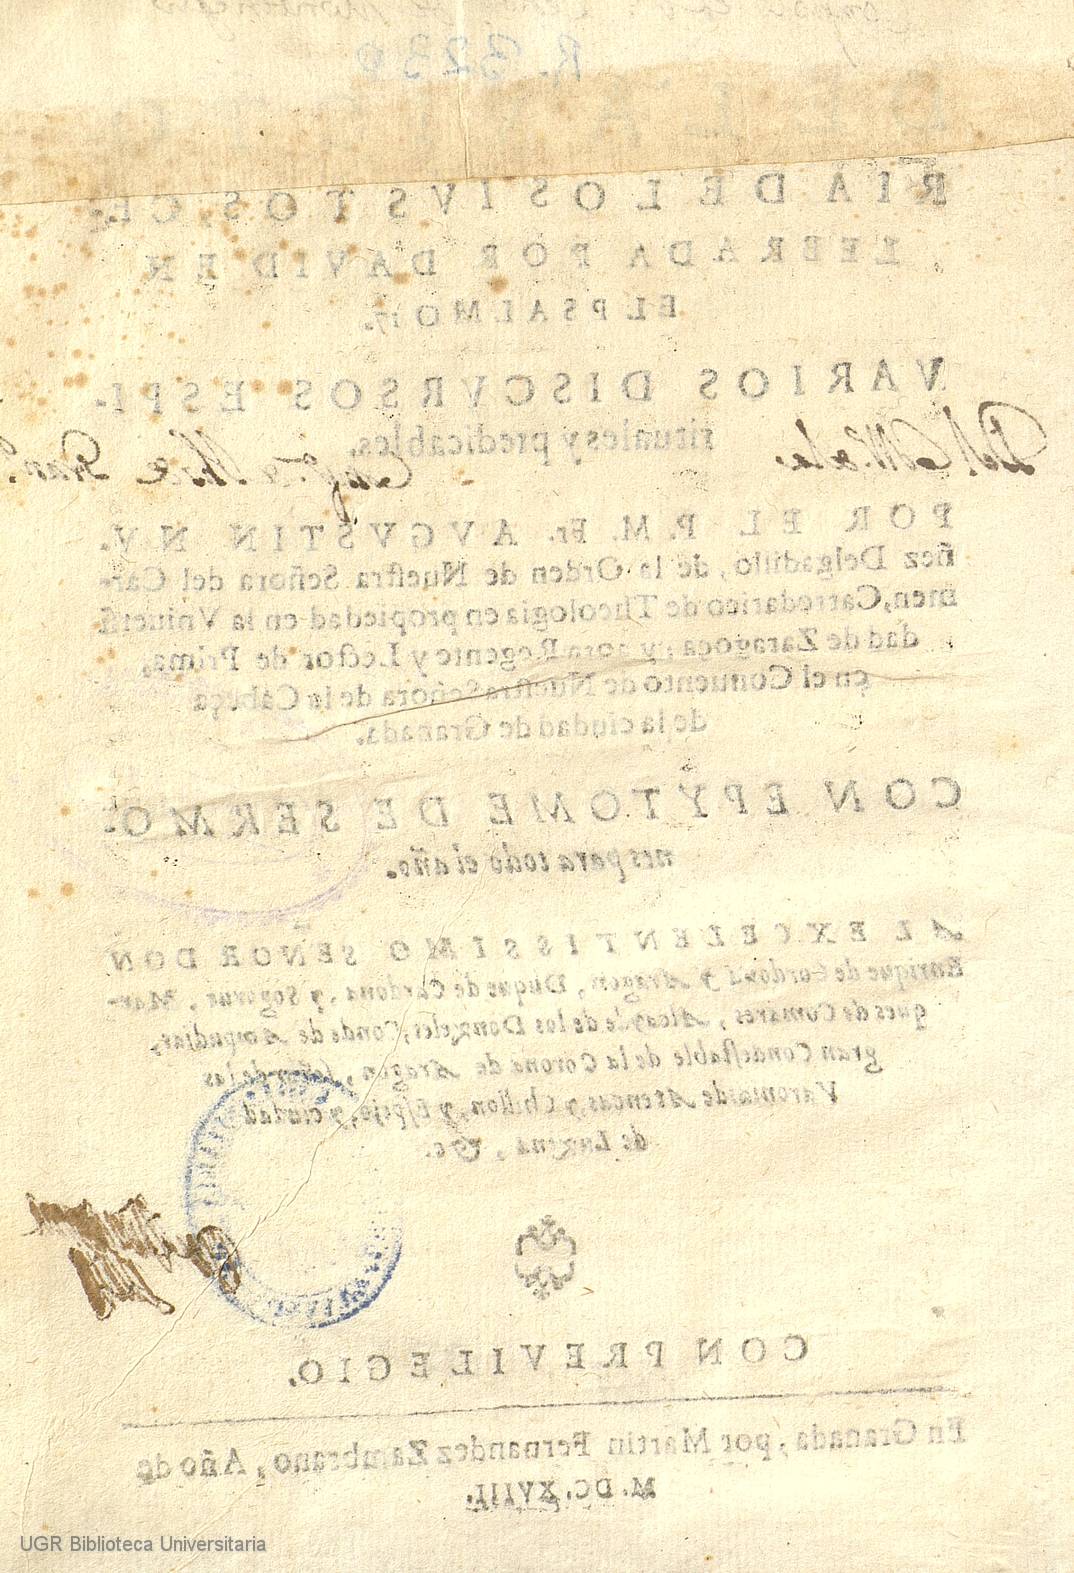 R. 3230
RIA DE LOS IVSTOS, CE-
LEBRADA POR DAVID EN
EL PSALMO 17.
VARIOS DISCVRSOS ESPI-
rituales y predicables.
POR EL P. M. Fr. AVGVSTIN NV-
ñez Delgadillo, de la Orden de Nueſtra Señora del Car-
men, Catredatico de Theologia en propiedad en la Vniuerſi
dad de Zaragoça, y aora Regente y Lector de Prima,
en el Conuento de Nueſtra Señora de la Cabeça
de la ciudad de Granada.
CON EPYTOME DE SERMO-
nes para todo el año.
AL EXCELENTISSIMO SEÑOR DON
Enrique de Cordoua y Aragon, Duque de Cardona, y Sogorue, Mar-
ques de Comares, Alcayde de los Donzeles, Conde de Ampudias,
gran Condeſtable de la Corona de Aragon, ſeñor de las
Varonias de Atenças, y Chillon, y Eſpejo, y ciudad
de Luzena, &c.
CON PREVILEGIO.
En Granada, por Martin Fernandez Zambrano, Año de
M. DC. XVIII.
UGR Biblioteca Universitaria